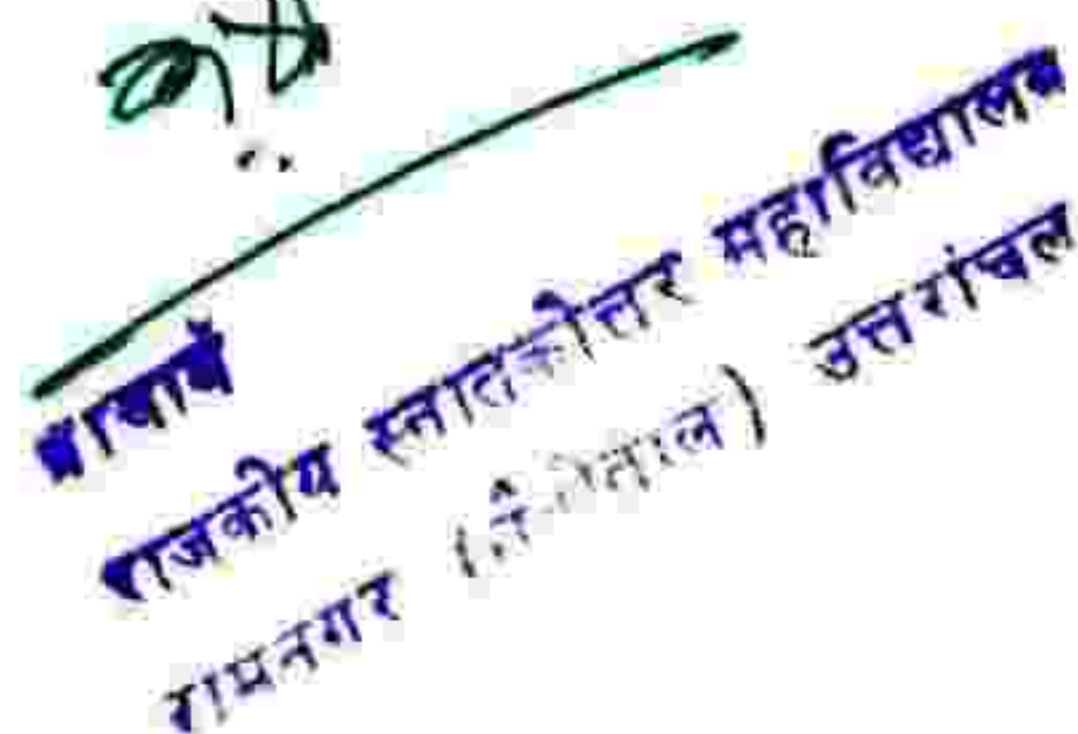 प्राचार्य
राजकीय स्नातकोत्तर महाविद्यालय
रामनगर (नैनीताल) उत्तरांचल